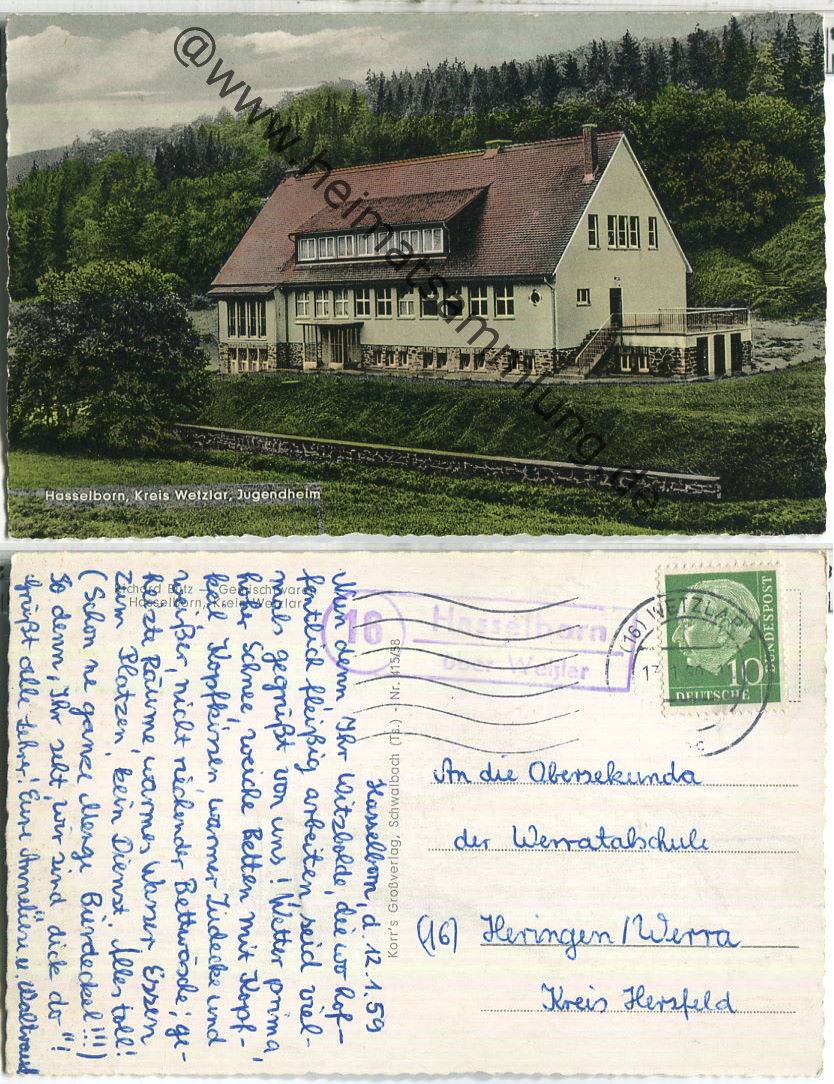 @www.heimatsammlung.de
Hasselborn, Kreis Wetzlar, Jugendheim
Richard Butz — Gemischtwaren
Hasselborn, Kreis Wetzlar
Hasselborn, d. 12.1.59
Nun denn, Ihr Witzbolde, die wo hof-
fentlich fleißig arbeiten, seid viel-
mals gegrüßt von uns! Wetter prima,
hoher Schnee, weiche Betten mit Kopf-
keil, Kopfkissen, warmer Zudecke und
weißer, nicht riechender Bettwäsche; ge-
heizte Räume, warmes Wasser, Essen
zum Platzen, kein Dienst. Alles toll!
(Schon 'ne ganze Menge Bierdeckel!!!)
So denn, Ihr seht, wir sind „dick do"!
Grüßt alle Lehrer! Eure Anneliese u. Waltraud
Korr's Großverlag, Schwalbach (Ts.) - Nr. 415/58
16
Hasselborn
über Wetzlar
(16) WETZLAR
10
DEUTSCHE
BUNDESPOST
An die Obersekunda
der Werratalschule
(16) Heringen/Werra
Kreis Hersfeld